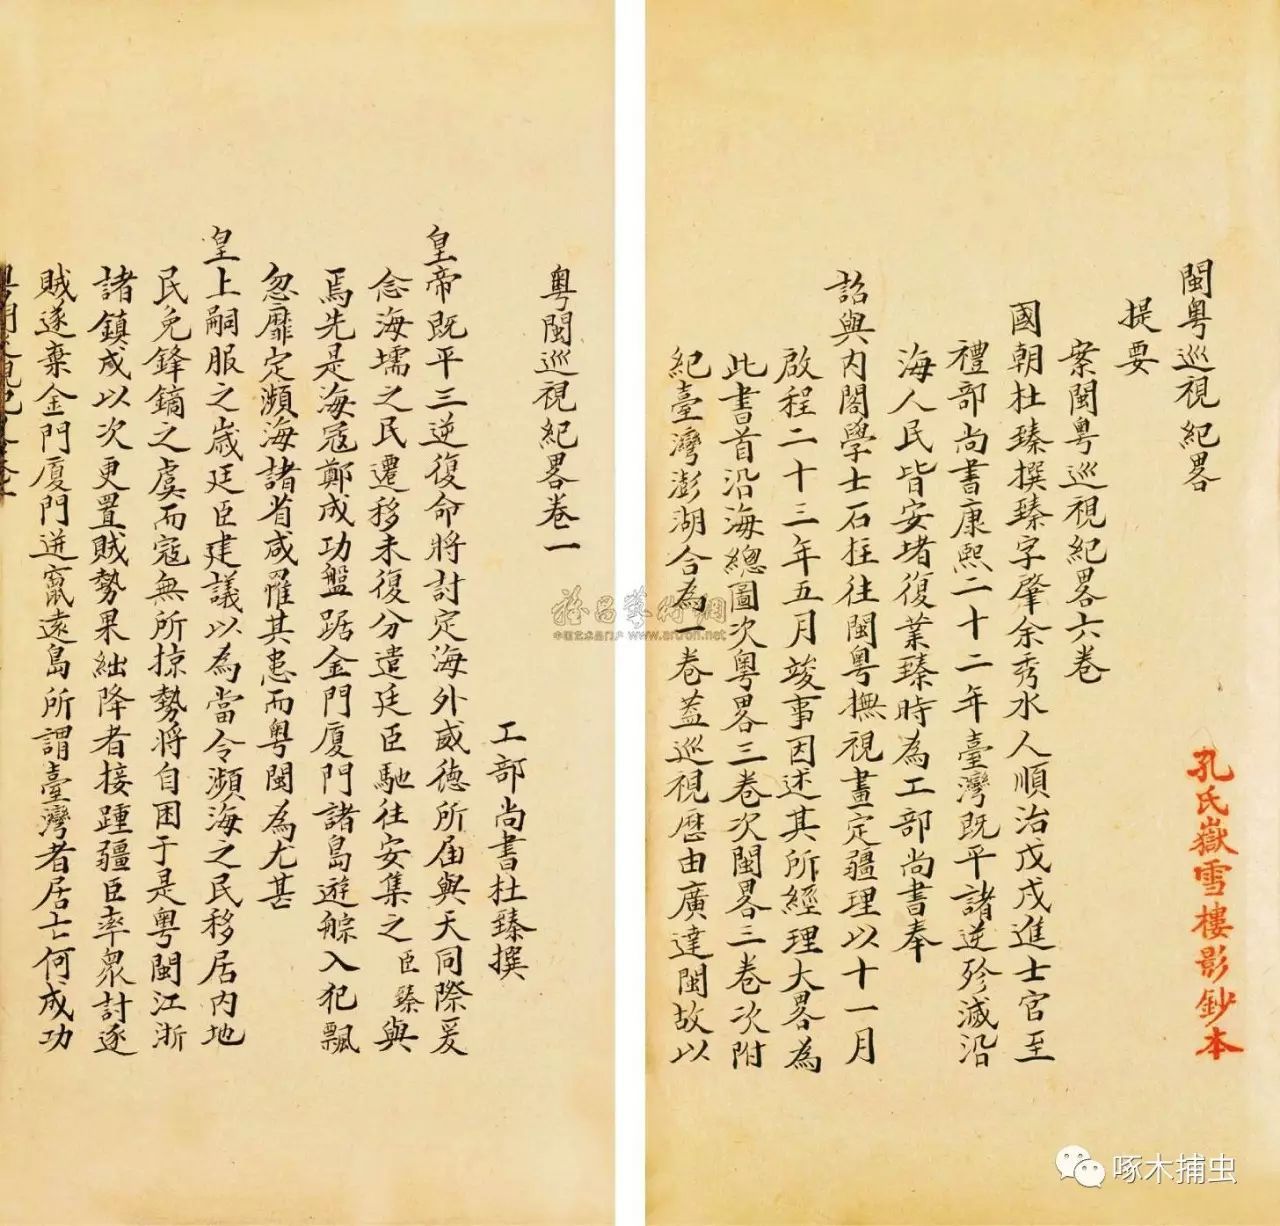 閩粤巡視紀畧
提要
案閩粤巡視紀畧六卷
國朝杜臻撰臻字肇余秀水人順治戊戌進士官至
禮部尚書康熙二十二年臺灣既平諸逆殄滅沿
海人民皆安堵復業臻時為工部尚書奉
詔與內閣學士石拄往閩粤撫視畫定疆理以十一月
啟程二十三年五月竣事因述其所經理大畧為
此書首沿海總圖次粤畧三卷次閩畧三卷次附
紀臺灣澎湖合為一卷蓋巡視歷由廣達閩故以
孔氏嶽雪樓影鈔本
粤閩巡視紀畧卷一
工部尚書杜臻撰
皇帝既平三逆復命將討定海外威德所届與天同際爰
念海壖之民遷移未復分遣廷臣馳往安集之臣臻與
焉先是海寇鄭成功盤踞金門厦門諸島遊䑸入犯飄
忽靡定瀕海諸省咸罹其患而粤閩為尤甚
皇上嗣服之歲廷臣建議以為當令瀕海之民移居內地
民免鋒鏑之虞而寇無所掠勢將自困于是粤閩江浙
諸鎮戍以次更置賊勢果絀降者接踵疆臣率衆討逐
賊遂棄金門厦門迸竄遠島所謂臺灣者居亡何成功
雅昌藝術網
中国艺术品门户 www.artron.net
啄木捕虫